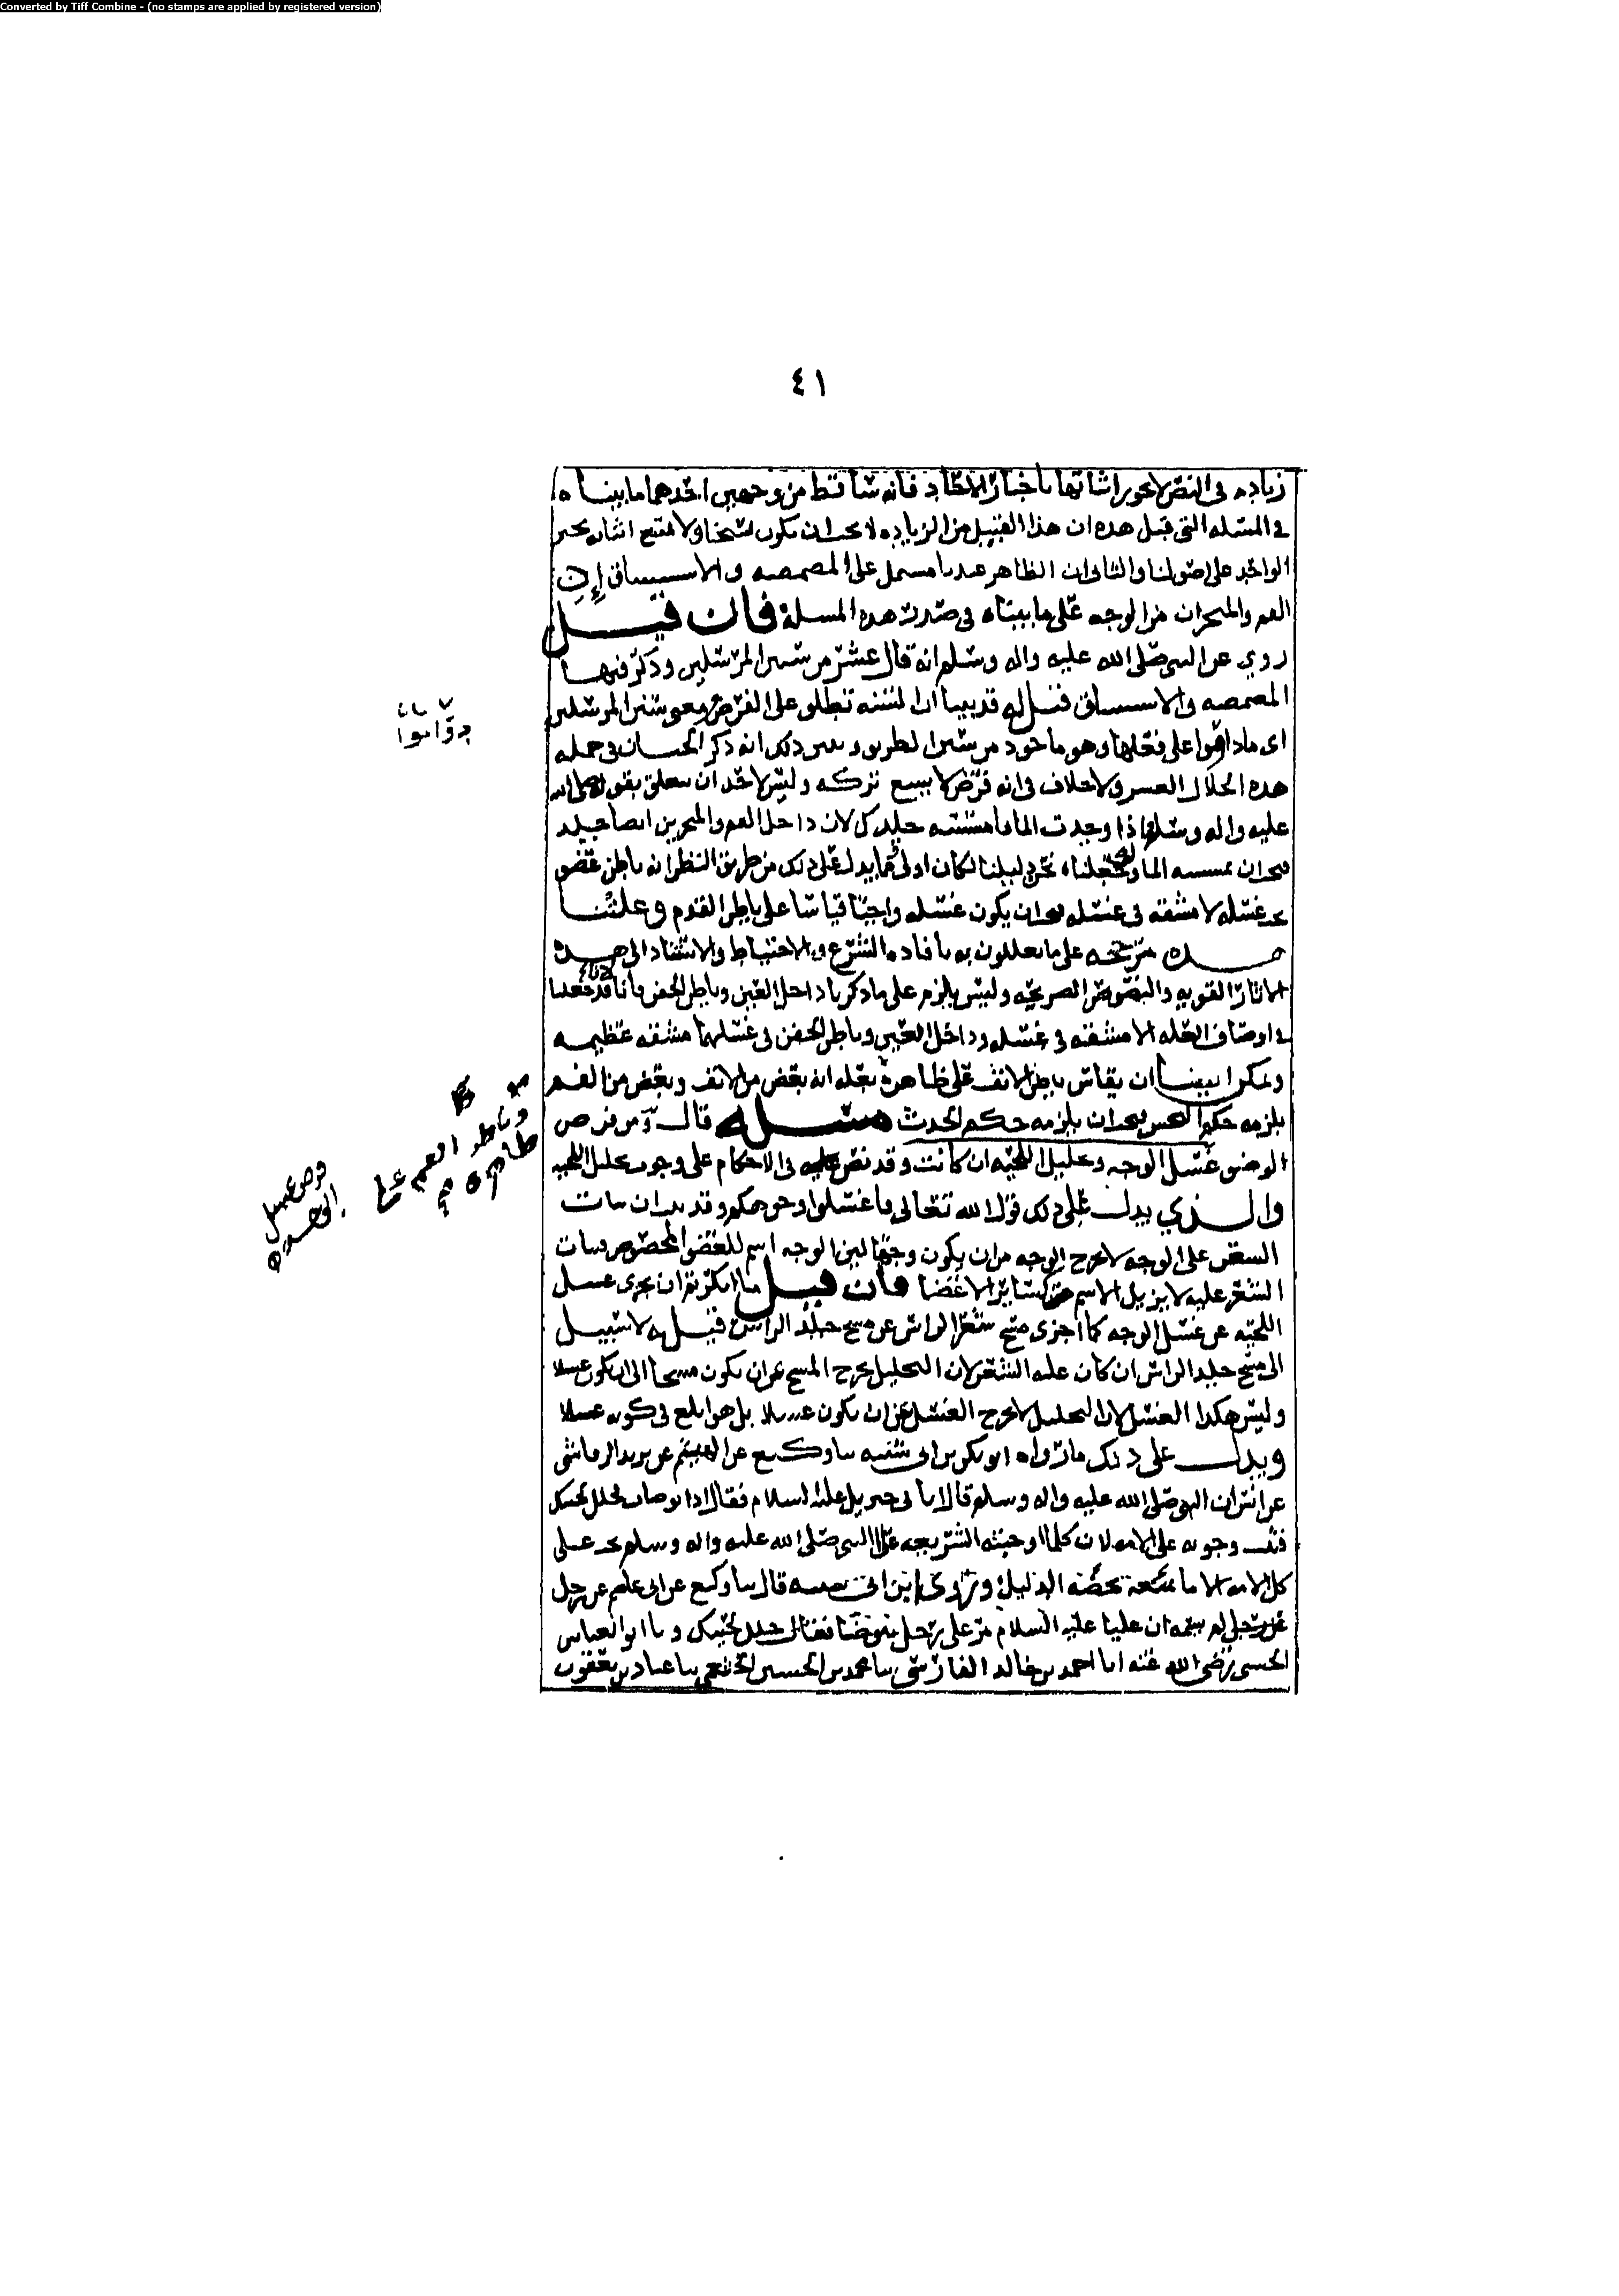 Converted by Tiff Combine - (no stamps are applied by registered version)
٤١
زياده في النص لا يجوز اثباتها باخبار الاحاد فانه ساقط من وجهين احدهما ما بيناه
في المسله التي قبل هذه ان هذا القبيل من الزياده لا يجب ان يكون نسخا ولا يمتنع اثباته بخبر
الواحد على اصولنا والثاني ان الظاهر عندنا مشتمل على المضمضه والاستنشاق إذ
الفم والمنخران من الوجه على ما بيناه في صدر هذه المسلة فان قيل
روي عن النبي صلى الله عليه واله وسلم انه قال عشر من سنن المرسلين وذكر فيها
المضمضه والاستنشاق قيل له قد بينا ان السنه تطلق على الفرض ومعنى سنن المرسلين
اي ما داموا على فعلها وهو ماخوذ من سنن الطريق ويبين ذلك انه ذكر الختان في جمله
هذه الخلال العشر ولا خلاف في انه فرض لا يسع تركه وليس لاحد ان يتعلق بقوله صلى الله
عليه واله وسلم اذا وجدت الما فامسسه جلدك لان داخل الفم والمنخرين ايضا جلد
فيجب ان يمسسه الما ولو جعلناه نحن دليلنا لكان اولى فما يدل على ذلك من طريق النظر انه باطن عضو
يجب غسله لا مشقه في غسله فيجب ان يكون غسله واجبا قياسا على باطن القدم وعلتنا
هذه مترجحه على ما يعللون به بافاده الشرع والاحتياط والاستناد الى هذه
الاثار القويه والنصوص الصريحه وليس يلزم على ما ذكرنا داخل العين وباطن الجفن فانا قد جعلنا
في اوصاف العله الا مشقه في غسله وداخل العين وباطن الجفن في غسلهما مشقه عظيمه
ويمكن ايضا ان يقاس باطن الانف على ظاهره بعله انه بعض من الانف وبعض من الفم
يلزمه حكم النجس فيجب ان يلزمه حكم الحدث مسله قال ومن فرض
الوضو غسل الوجه وتخليل اللحيه ان كانت وقد نص في الاحكام على وجوب تخليل اللحيه
والذي يدل على ذلك قول الله تعالى فاغسلوا وجوهكم وقد ان نبات
الشعر على الوجه لا يخرج الوجه من ان يكون وجها لان الوجه اسم للعضو المخصوص ونبات
الشعر عليه لا يزيل الاسم عنه كسائر الاعضا فان قيل ما انكرتم ان يجزي غسل
اللحيه عن غسل الوجه كما اجزى مسح شعر الراس عن مسح جلد الراس قيل له لا سبيل
الى مسح جلد الراس ان كان عليه الشعر لان التخليل يخرج المسح عن ان يكون مسحا الى ان يكون غسلا
وليس هكذا الغسل لان التخليل لا يخرج الغسل عن ان يكون غسلا بل هو ابلغ في كونه غسلا
ويدل على ذلك ما رواه ابو بكر بن ابي شيبه نا وكيع عن الهيثم عن يزيد الرقاشي
عن انس ان النبي صلى الله عليه واله وسلم قال اتاني جبريل عليه السلام فقال اذا توضات فخلل لحيتك
فثبت وجوبه على الامه لان كلما اوجبته الشريعه على النبي صلى الله عليه واله وسلم يجب على
كل الامه الا ما يخصه الدليل وروى ابن ابي شيبه قال نا وكيع عن ابي عاصم عن رجل
عن رجل لم يسمه ان عليا عليه السلام مر على رجل يتوضا فقال خلل لحيتك ونا ابو العباس
الحسني رضي الله عنه انا احمد بن خالد الفارسي نا محمد بن الحسين الخثعمي نا عباد بن يعقوب
فرض غسل
الوجه